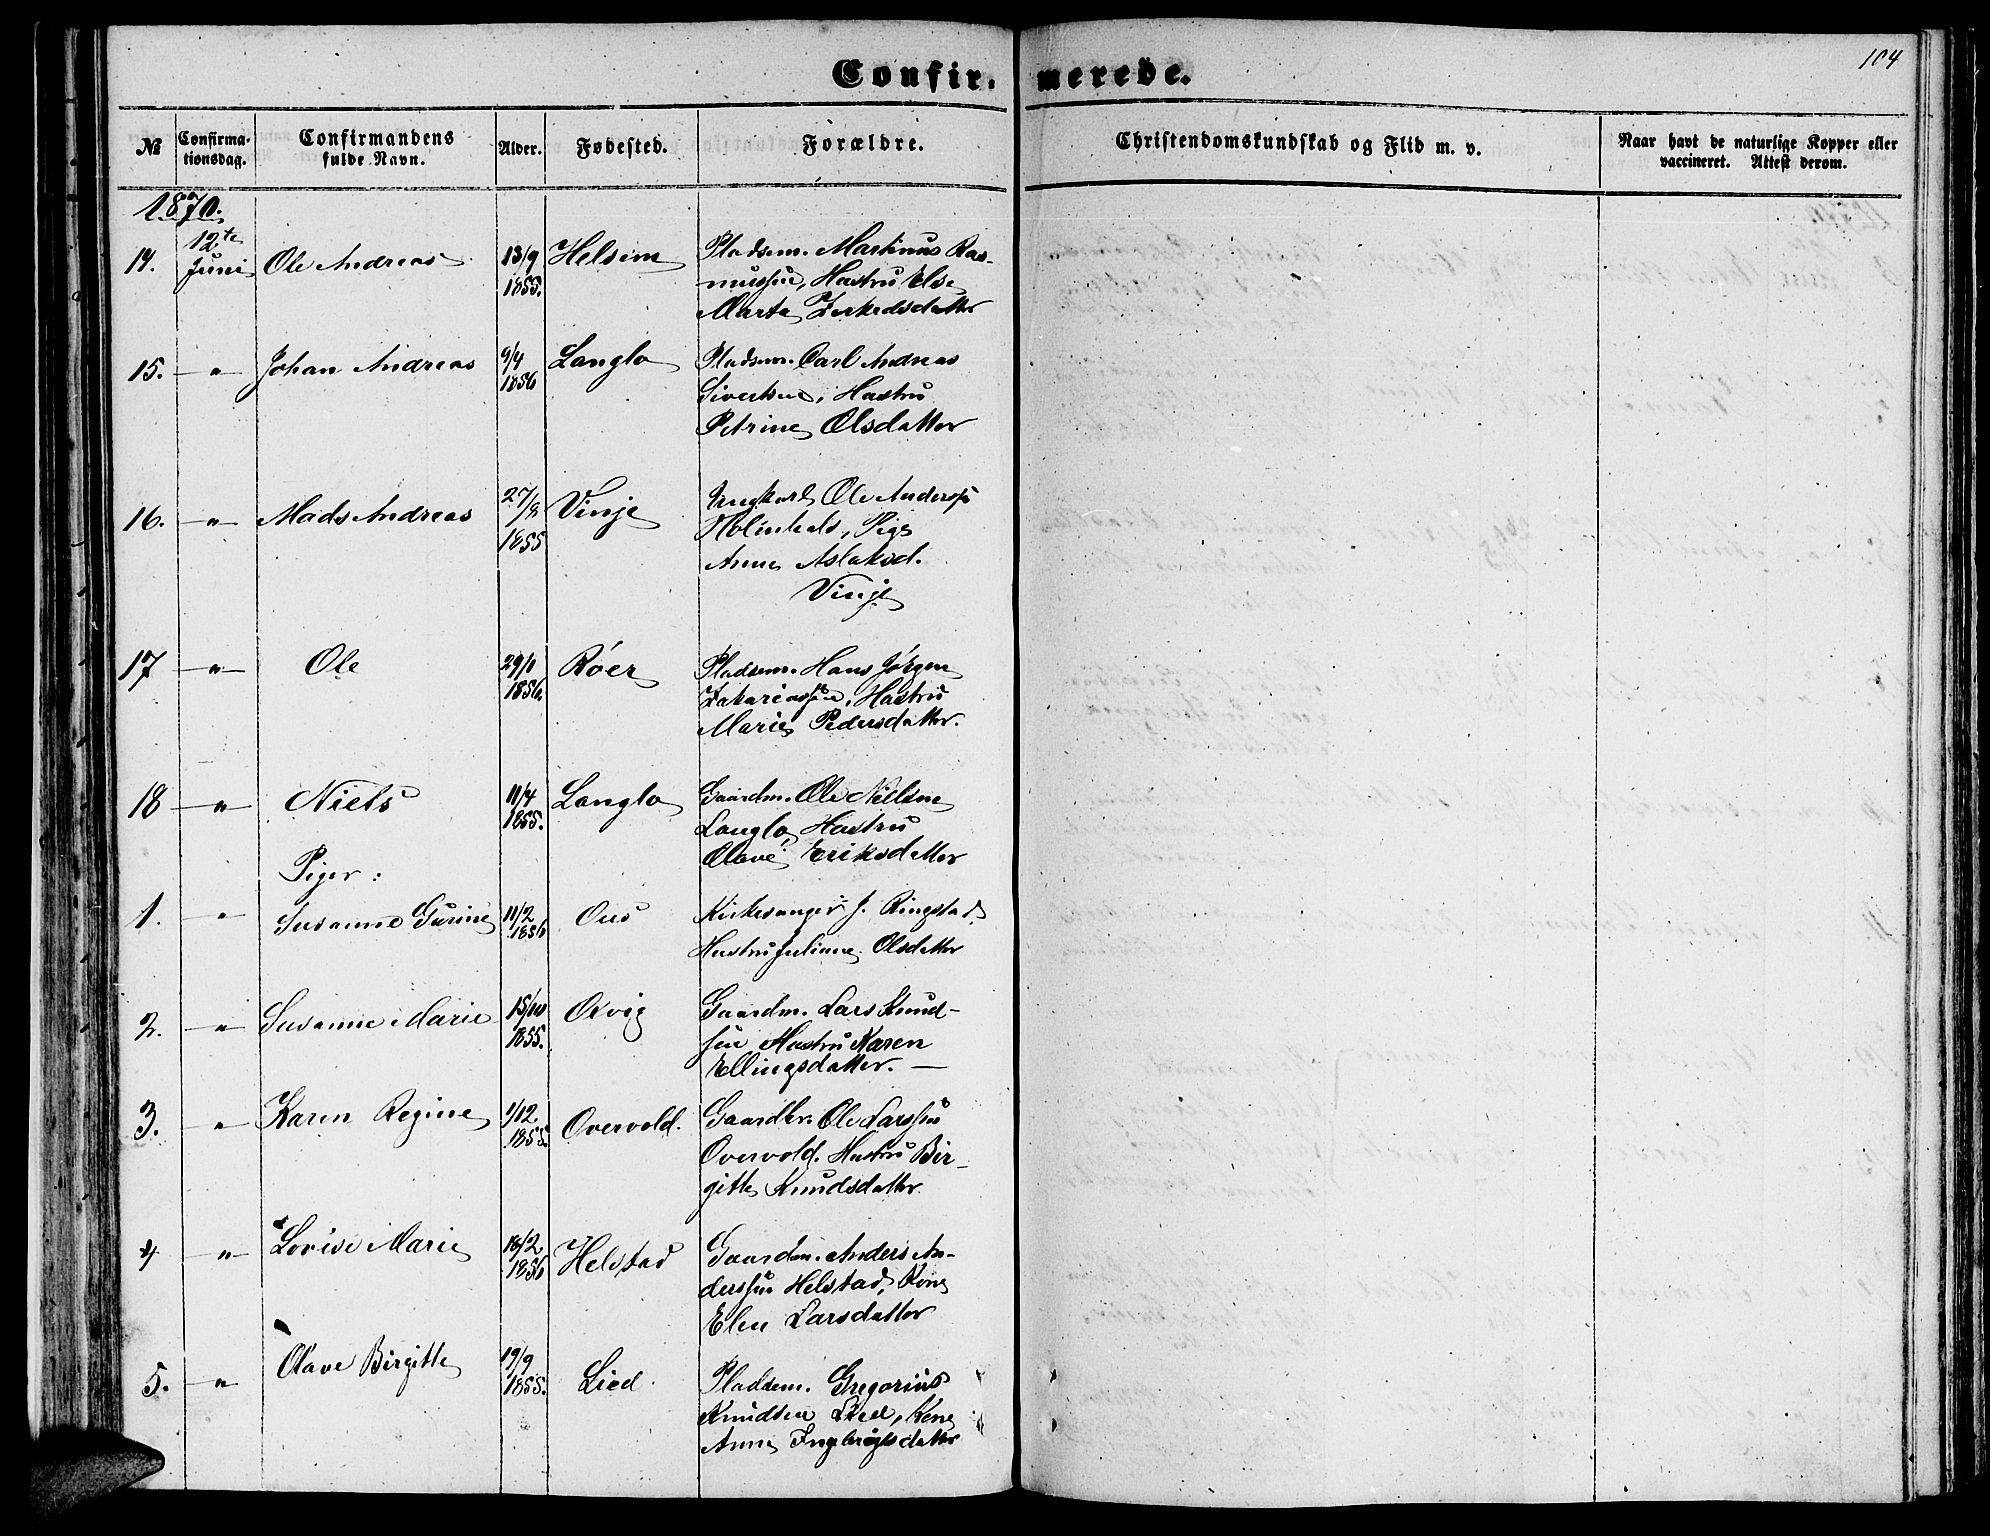 104
Confir. merede.
№
Confirma-
tionsdag.
Confirmandens
fulde Navn.
Alder.
Fødested.
Forældre.
Christendomskundskab og Flid m. v.
Naar havt de naturlige Kopper eller
vaccineret. Attest derom.
1870.
12te
14. Juni Ole Andreas 13/9 Helsem Pladsem. Martinus Ras-
1855. mussen, Hustru Else
Marta
15. — " — Johan Andreas 9/4 Langlo Pladsem. Carl Andreas
1856 Sivertsen, Hustru
Petrine Olsdatter
16. — " — Mads Andreas 27/8 Vinje Ungkarl Ole Anders
1855 Pige
Anne Aslaksd.
Vinje
17 — " — Ole 1856 Røer Pladsem. Hans Jørgen
Zakariassen, Hustru
Marie Pedersdatter.
18 — " — Niels 11/4 Langlo Gaardm. Ole Nielsen
1855. Langlo, Hustru
Olave Eriksdatter
Piger:
1. " Susanne Gurine 11/2 Ous Kirkesanger J. Ringstad
1856 Hustru Juliane Olsdatter
2. — " — Susanne Marie 15/10 Oxvig Gaardm. Lars Knud-
1855. sen Hustru Karen
Ellingsdatter. —
3. " Karen Regine 1/12 Overvold. Gaardbr. Ole Larssen
1855. Overvold. Hustru Bir-
gitte Knudsdatter.
4 — " — Lovise Marie 18/2 Helstad Gaardm. Anders An-
1856 derssen Helstad, Kone
Elen Larsdatter
5. — " — Olave Birgitte 19/9 Lied Pladsem. Gregorius
1855. Knudsen Lied, Kone
Anne Ingebrigtsdatter